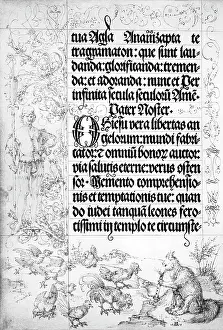 tua Agla Anaw̃zapta te
tragramaton: que sint lau-
danda: glorificanda: tremen-
da: et adoranda: nunc et Per
infinita secula seculorũ Amẽ
Pater Noster.
O Jesu vera libertas an
gelorum: mundi fabri-
cator: et omniũ bonoꝝ auctor
via salutis eterne: verus osten-
sor. Memento comprehensio
nis et temptationis tue: quan
do iudei tanquã leones fero-
tissimi in templo te circumste-